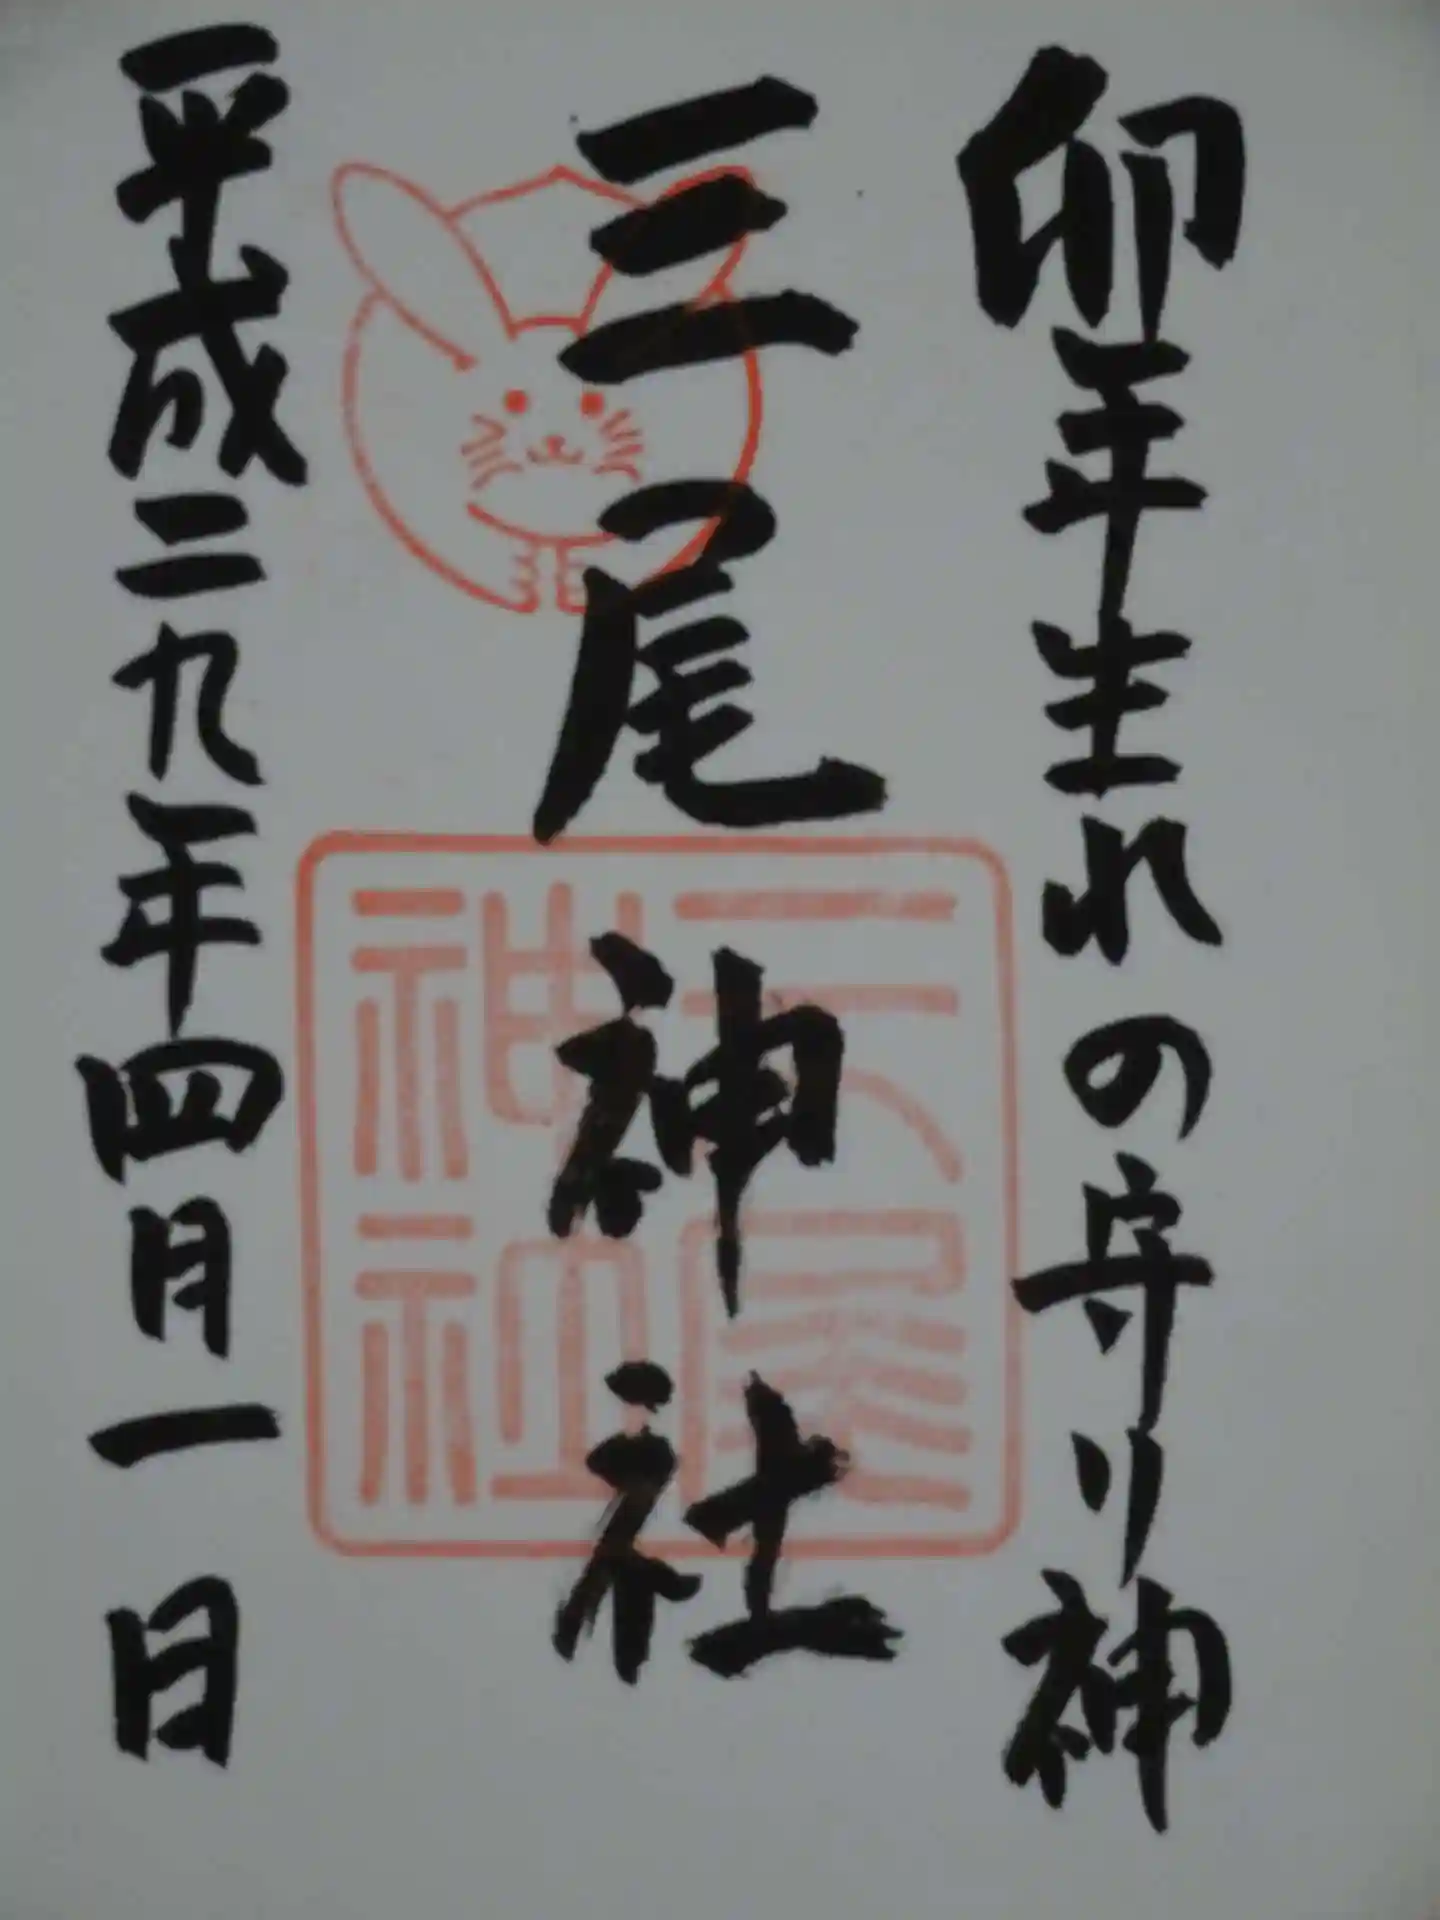 卯年生れの守り神
三尾神社
平成二九年四月一日
三尾
神社